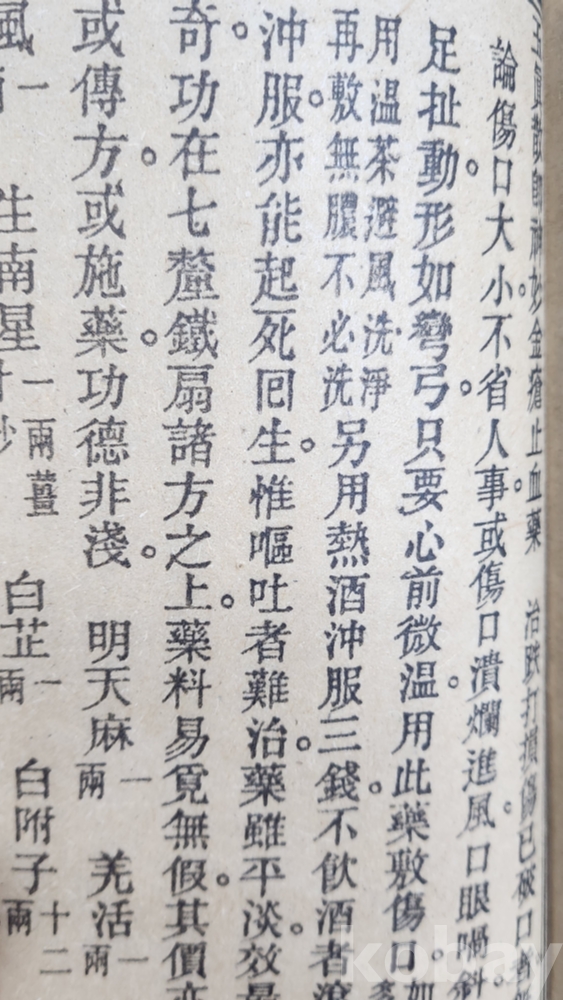 玉眞散即神妙金瘡止血藥　治跌打損傷已破口
論傷口大小。不省人事。或傷口潰爛進風。口眼喎斜。
足扯動。形如彎弓。只要心前微溫。用此藥敷傷口。如
用溫茶避風洗淨
再敷無膿不必洗
另用熱酒沖服三錢。不飲酒者滾
沖服。亦能起死回生。惟嘔吐者難治。藥雖平淡。效最
奇功在七釐鐵扇諸方之上。藥料易覓無假。其價亦
或傳方。或施藥。功德非淺。　明天麻一兩　羌活一兩
風　一　生南星一兩薑　白芷一兩　白附子十二兩
kobay